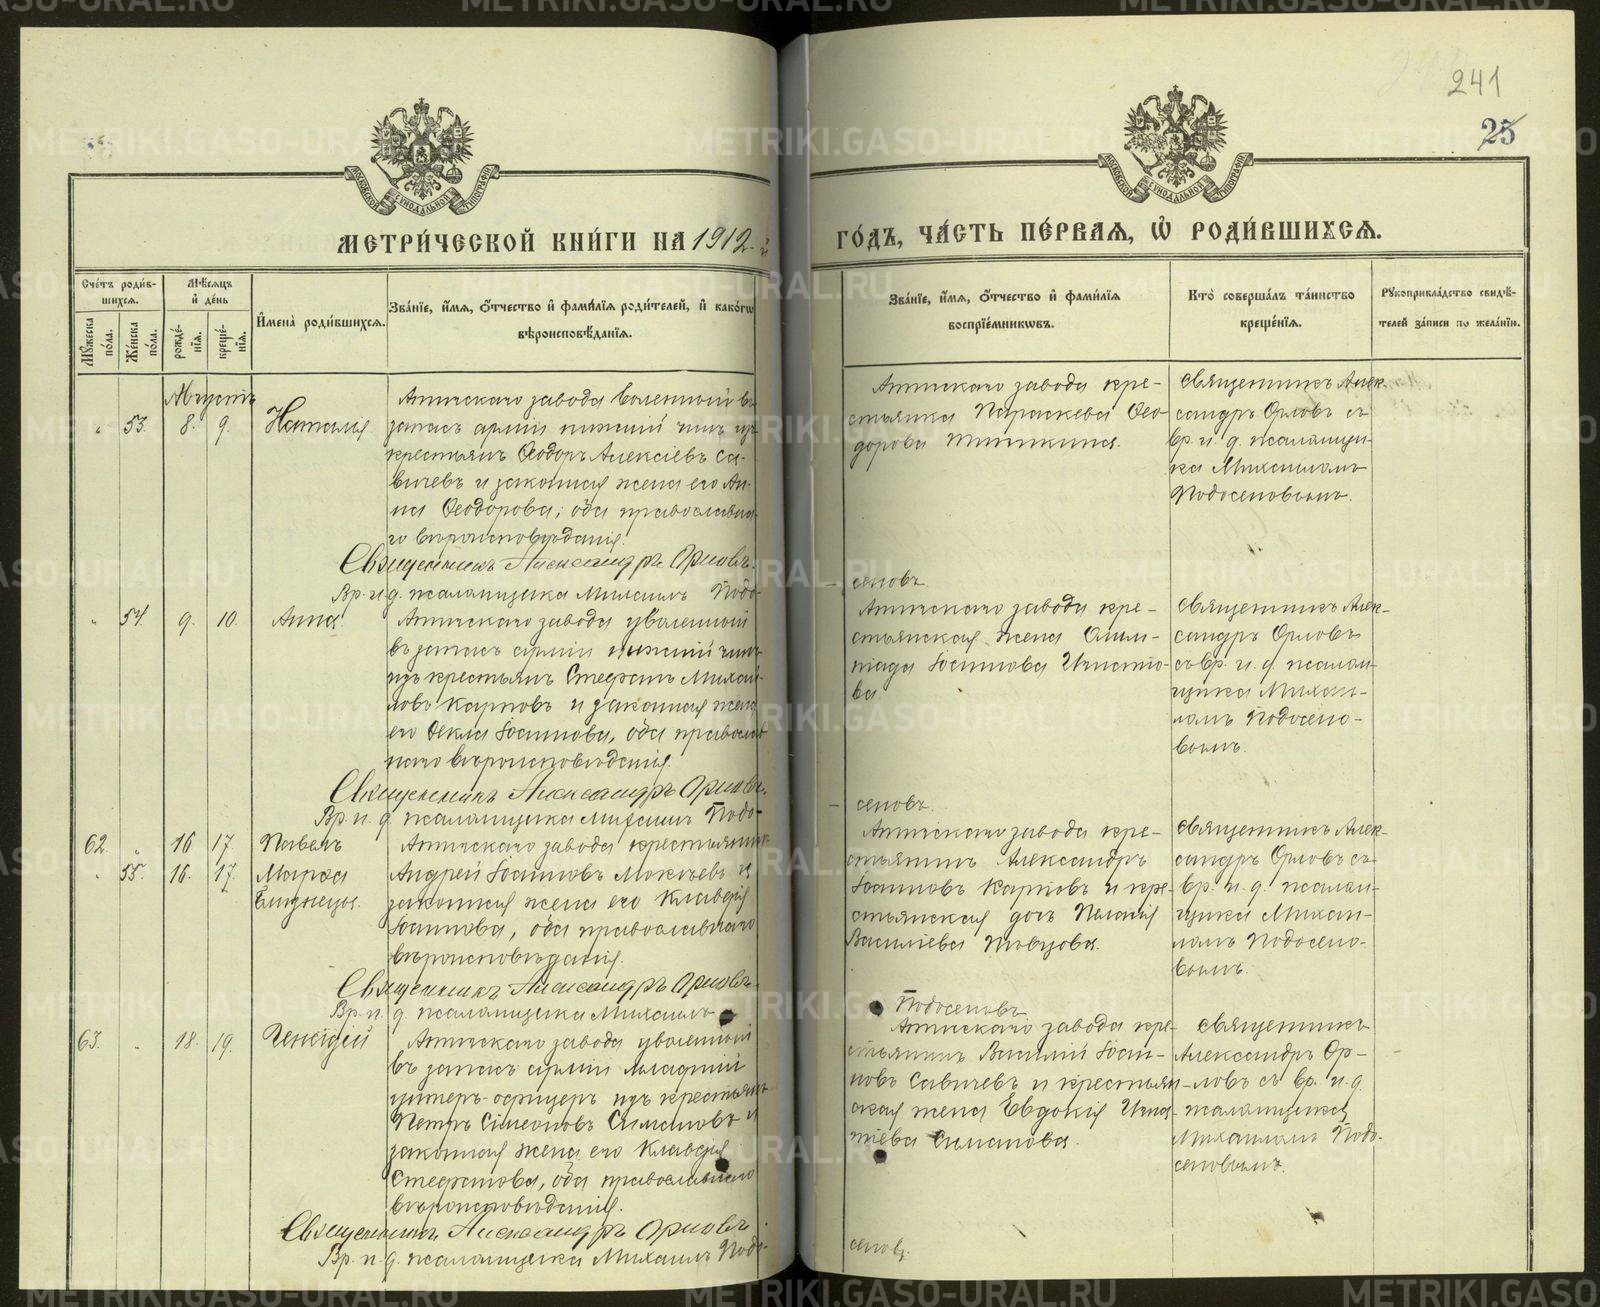 241
25
МЕТРИ́ЧЕСКОЙ КНИ́ГИ НА 1912-й ГО́ДЪ, ЧА́СТЬ ПЕ́РВАЯ, Ѡ҆ РОДИ́ВШИХСЯ.
Сче́тъ роди́в-
шихся.
Мꙋ́жеска по́ла.
Же́нска по́ла.
Мѣ́сяцъ
и҆ де́нь
рожде́-
нїя.
креще́-
нїя.
И҆мена̀ роди́вшихся.
Зва́нїе, и҆́мя, ѻ҆́тчество и҆ фами́лїя роди́телей, и҆ како́гѡ
вѣроисповѣ́данїя.
Зва́нїе, и҆́мя, ѻ҆́тчество и҆ фами́лїя
воспрїе́мниковъ.
Кто̀ соверша́лъ та́инство
креще́нїя.
Рꙋкоприкла́дство свидѣ́-
телей за́писи по жела́нїю.
Августъ
53. 8. 9. Наталія
Ачитскаго завода уволенный въ
запасъ арміи нижній чинъ изъ
крестьянъ Ѳеодоръ Алексіевъ Са-
вичевъ и законная жена его Ан-
на Ѳеодорова; оба православна-
го вѣроисповѣданія.
Священникъ Александръ Орловъ.
Вр. и. д. псаломщика Михаилъ Подо-
сеновъ.
Ачитскаго завода кре-
стьянка Параскева Ѳео-
дорова
Священникъ Алек-
сандръ Орловъ съ
вр. и. д. псаломщи-
ка Михаиломъ
Подосеновымъ.
54. 9. 10. Анна
Ачитскаго завода уволенный
въ запасъ арміи нижній чинъ
изъ крестьянъ Стефанъ Михаи-
ловъ Карповъ и законная жена
его Ѳекла Іоаннова, оба православ-
наго вѣроисповѣданія.
Священникъ Александръ Орловъ.
Вр. и. д. псаломщика Михаилъ Подо-
сеновъ.
Ачитскаго завода кре-
стьянская жена Олим-
піада Іоаннова
Священникъ Алек-
сандръ Орловъ
съ вр. и. д. псалом-
щика Михаи-
ломъ Подосено-
вымъ.
62. 16. 17. Павелъ
55. 16. 17. Марѳа
Близнецы.
Ачитскаго завода крестьянинъ
Андрей Іоанновъ и
законная жена его Клавдія
Іоаннова, оба православнаго
вѣроисповѣданія.
Священникъ Александръ Орловъ.
Вр. и. д. псаломщика Михаилъ
Подосеновъ
Ачитскаго завода кре-
стьянинъ Александръ
Іоанновъ Карповъ и кре-
стьянская дочь Пелагія
Василіева
Священникъ Алек-
сандръ Орловъ съ
вр. и. д. псалом-
щика Михаи-
ломъ Подосено-
вымъ.
63. 18. 19. Геннадій
Ачитскаго завода уволенный
въ запасъ арміи младшій
унтеръ-офицеръ изъ крестьянъ
Петръ Сімеоновъ Симановъ и
законная жена его Клавдія
Стефанова, оба православнаго
вѣроисповѣданія.
Священникъ Александръ Орловъ.
Вр. и. д. псаломщика Михаилъ Подо-
сеновъ.
Ачитскаго завода кре-
стьянинъ Василій Іоан-
новъ Савичевъ и крестьян-
ская жена Евдокія Игна-
тіева Симанова.
Священникъ
Александръ Ор-
ловъ съ вр. и. д.
псаломщика
Михаиломъ Подо-
сеновымъ.
METRIKI.GASO-URAL.RU